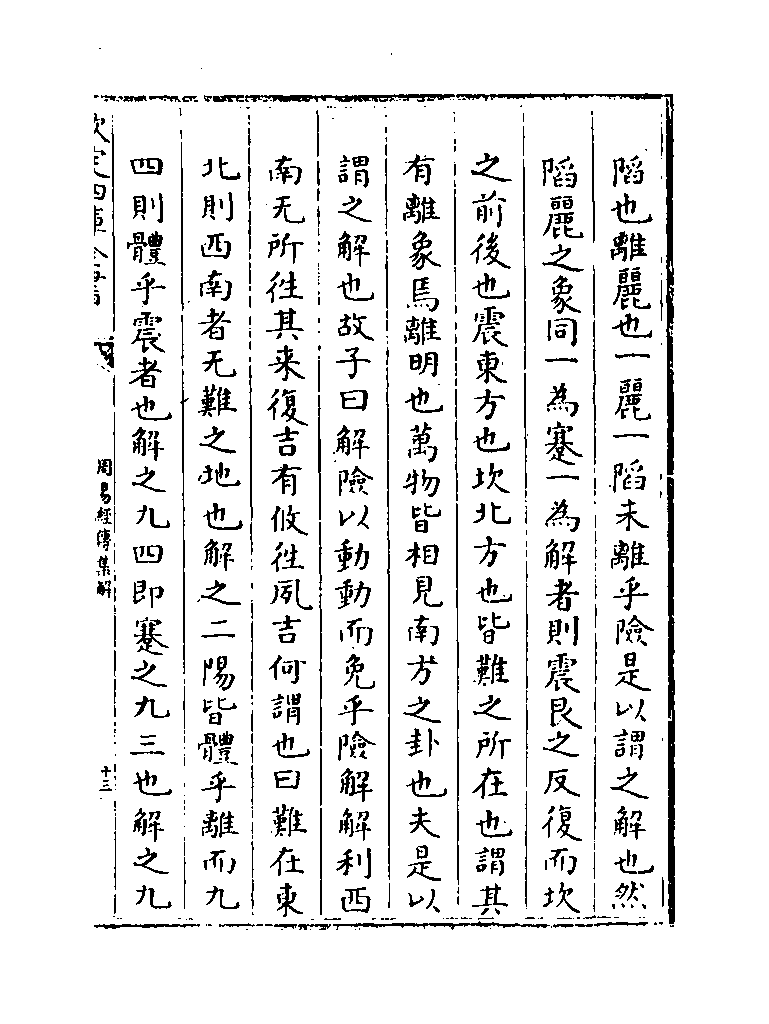 䧟也離麗也一麗一䧟未離乎險是以謂之解也然
䧟麗之象同一為蹇一為解者則震艮之反復而坎
之前後也震東方也坎北方也皆難之所在也謂其
有離象焉離明也萬物皆相見南方之卦也夫是以
謂之解也故子曰解險以動動而免乎險解解利西
南无所往其来復吉有攸往夙吉何謂也曰難在東
北則西南者无難之地也解之二陽皆體乎離而九
四則體乎震者也解之九四即蹇之九三也解之九
欽定四庫全書
周易經傳集解
十三